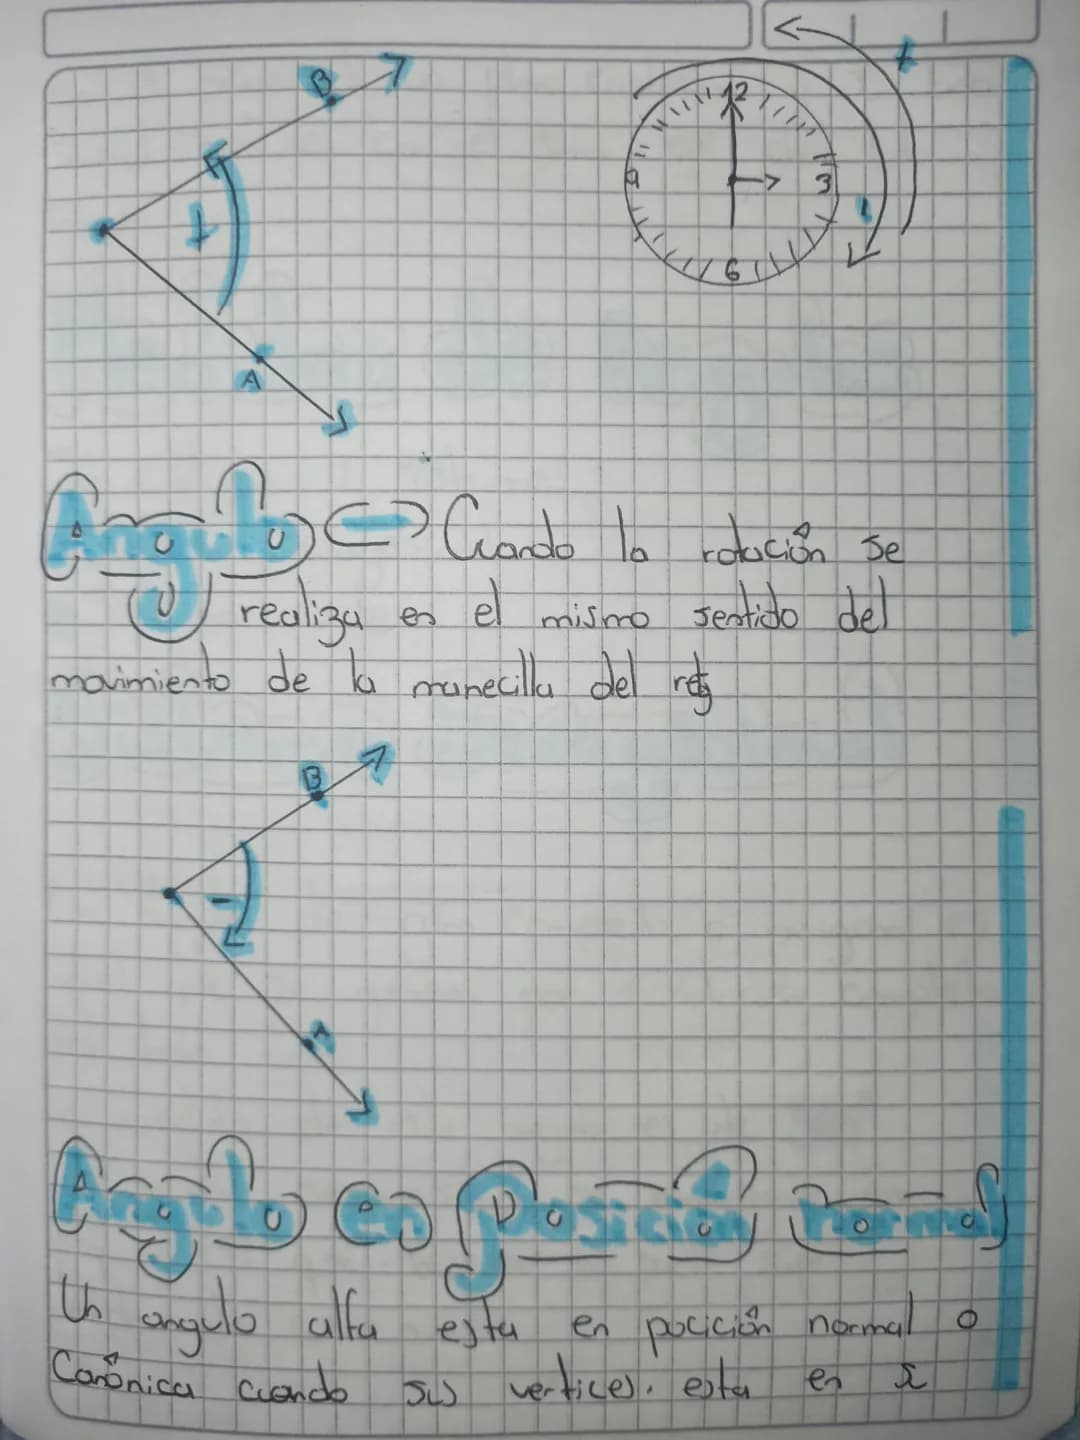 B
+
12
+
9
3
-
6
A
Angulo (-) Cuando la rotación se
realiza en el mismo sentido del
movimiento de la manecilla del reloj
B
-
A
Angulo en posición normal
Un angulo alfa esta en pocición normal o
Canónica cuando sus vertices. esta en